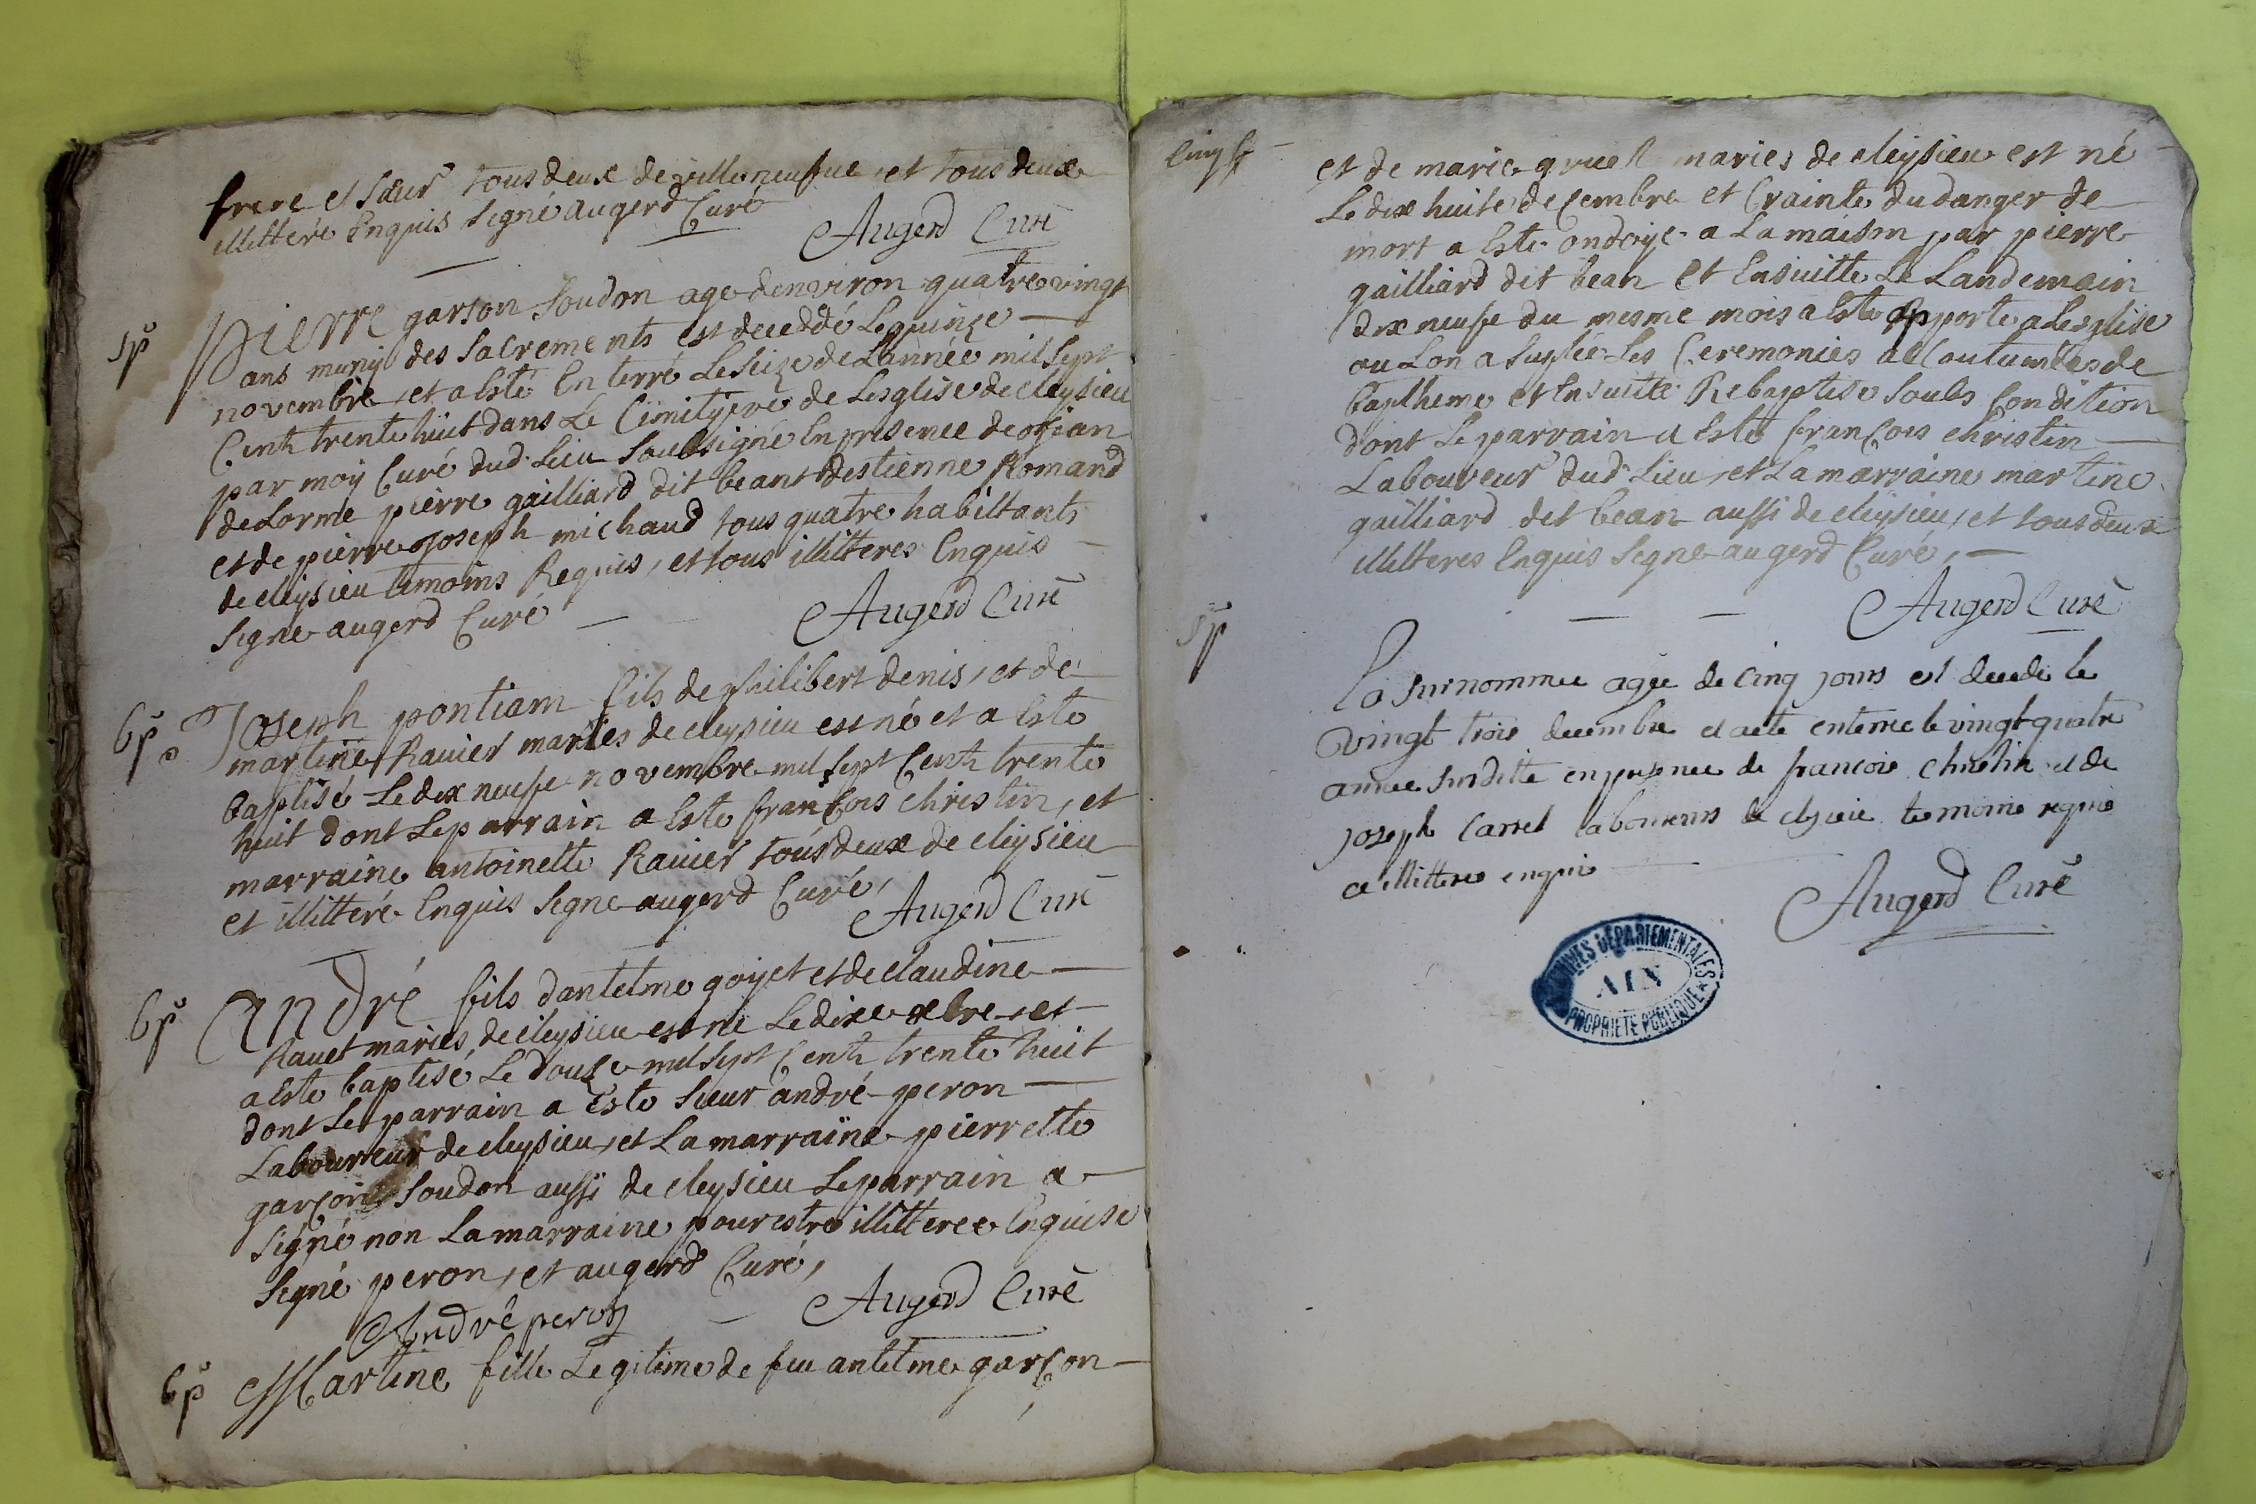 frere et sœur tous deux de villeneufue et tous deux
illitteré Enquis signé augerd Curé
Augerd Curé
sp
Pierre garson soudon agé denviron quatre vingt
ans muny des sacrements est decedde Le quinze
novembre et a Esté Enterré Le seize de Lannée mil sept
Cents trente huit dans Le Cimityere de Lesglise de cleysieu
par moy Curé dud. Lieu soubsigné En presence de
deLorme pierre gailliard dit beant destienne Romand
et de pierre joseph michaud tous quatre habittants
de cleysieu temoins Requis, et tous illitteres Enquis
signe augerd Curé
Augerd Curé
bp
Joseph pontiam fils de philibert denis, et de
martine Rauier maries de cleysieu est né et a Esté
baptisé Le dix neufe novembre mil sept Cents trente
huit dont Le parrain a Esté francois christin, et
marraine antoinette Rauier tous deux de cleysieu
et illitteré Enquis signe augerd Curé,
Augerd Curé
bp
André fils dantelme goyet et de claudine
Rauet maries de cleysieu est né Le dixe xbre, et
a Esté baptisé Le douze mil sept Cents trente huit
dont Le parrain a Esté sieur andré peron
Laboureur de cleysieu, et La marraine pierrette
garçon soudon aussi de cleysieu Le parrain a
signé non La marraine pour estre illitteree Enquise
signé peron, et augerd Curé,
Augerd Curé
André peron
bp
Martine fille Legitime de feu antelme garçon
et de marie maries de cleysieu est né
Le dix huite decembre et Crainte du danger de
mort a Esté ondoyé a La maison par pierre
gailliard dit bean et Ensuitte Le Landemain
dix neufe du mesme mois a Esté apporte a Lesglise
ou Lon a suplée Les Ceremonies acCoutumées de
baptheme et Ensuite Rebaptise soubs Condition
dont Le parrain a Esté francois christin
Laboureur dud. Lieu, et La marraine martine
gailliard dit bean aussi de cleysieu, et tous deux
illitteres Enquis signe augerd Curé,
Augerd Curé
sp
La surnommee agée de cinq jours est decedé le
vingt trois decembre et a eté enterrée le vingt quatre
année surditte en presence de francois christin et de
joseph carret laboureurs de cleysieu temoins requis
illitteres enquis
Augerd Curé
ARCHIVES DÉPARTEMENTALES
AIN
PROPRIÉTÉ PUBLIQUE